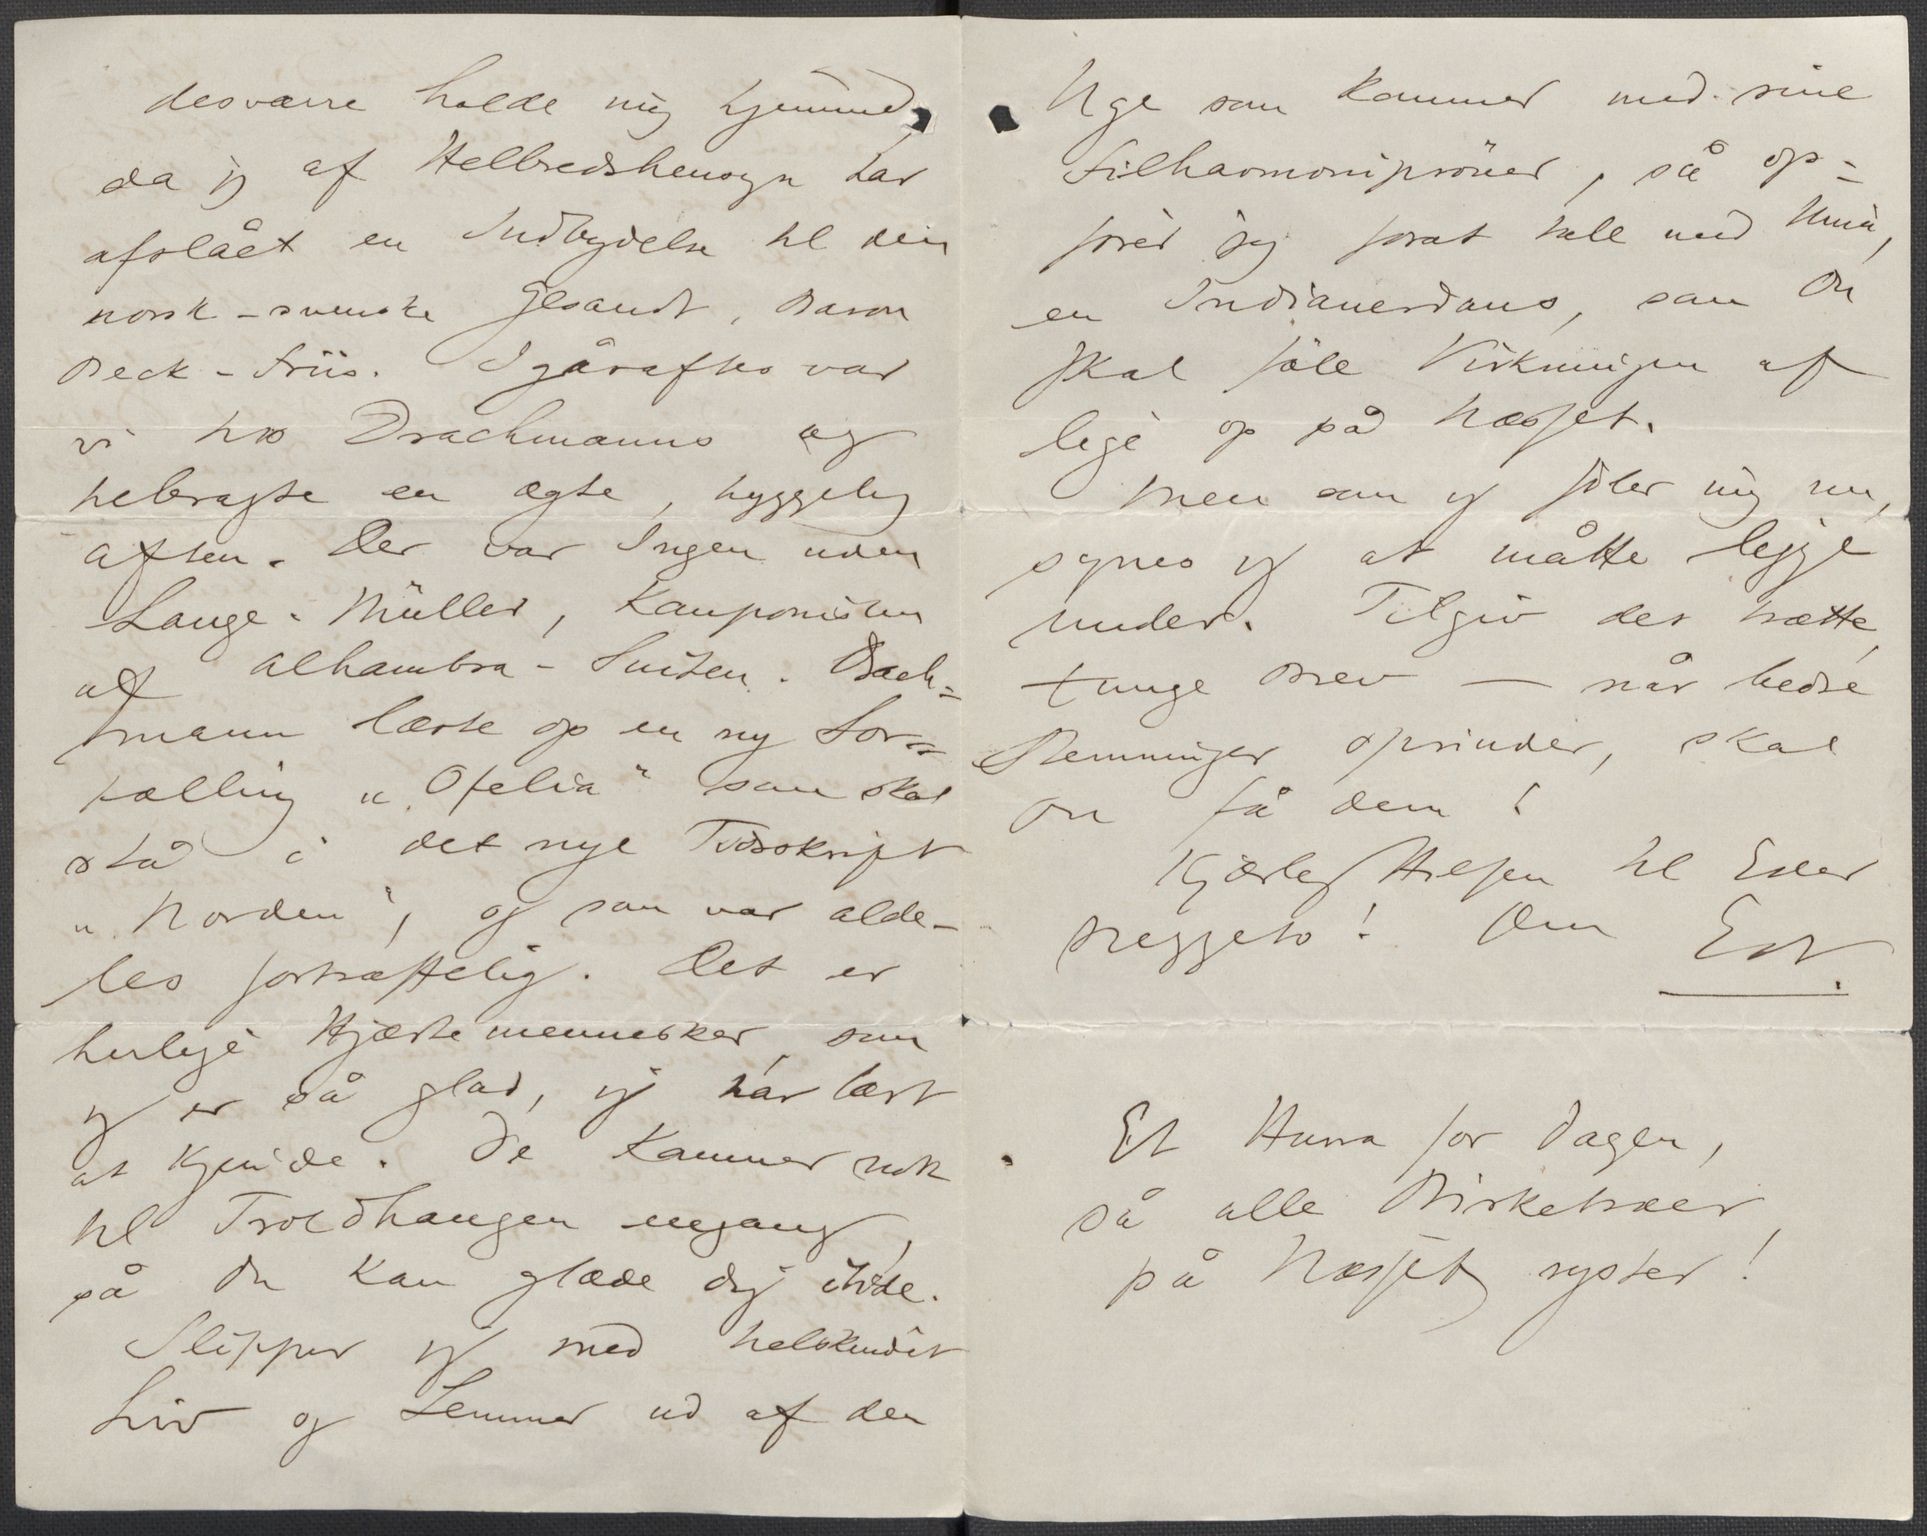 desværre holde mig hjemme,
da jeg af Helbredshensyn har
afslået en Indbydelse til den
norsk-svenske Gesandt, Baron
Beck-Friis. Igåraftes var
vi hos Drachmanns og
tilbragte en ægte, hyggelig
Aften. Der var Ingen uden
Lange-Müller, Komponisten
af Alhambra-Suiten. Drach=
mann læste op en ny For=
tælling "Ofelia" som skal
stå i det nye Tidsskrift
"Norden", og som var alde-
les fortræffelig. Det er
herlige Hjærtemennesker som
jeg er så glad, jeg har lært
at kjende. De kommer nok
til Troldhaugen engang,
så Du kan glæde dig itide.
Slipper jeg med helskindet
Liv og Lemmer ud af den
Uge som kommer med sine
Filharmoniprøver, så op=
fører jeg forat tale med
en Indianerdans, som Du
skal føle Virkningen af
lige op på Næsset.
Men som jeg føler mig nu,
synes jeg at måtte ligge
under. Tilgiv det trætte,
tunge Brev — når bedre
Stemninger oprinder, skal
Du få dem!
Kjærlig Hilsen til Eder
Beggeto! Din Edv.
Et Hurra for Dagen,
så alle Birketræer
på Næsset ryster!